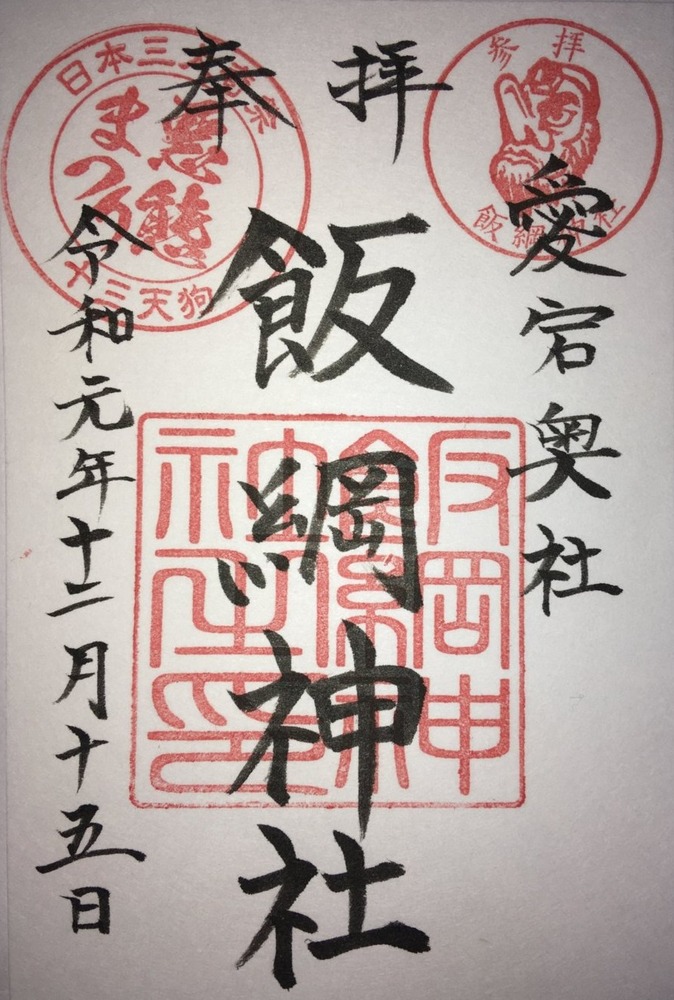 奉拝
愛宕奥社
飯綱神社
令和元年十二月十五日
参拝
飯綱神社
日本三大奇祭
悪態
まつり
十三天狗
飯綱神
社之印